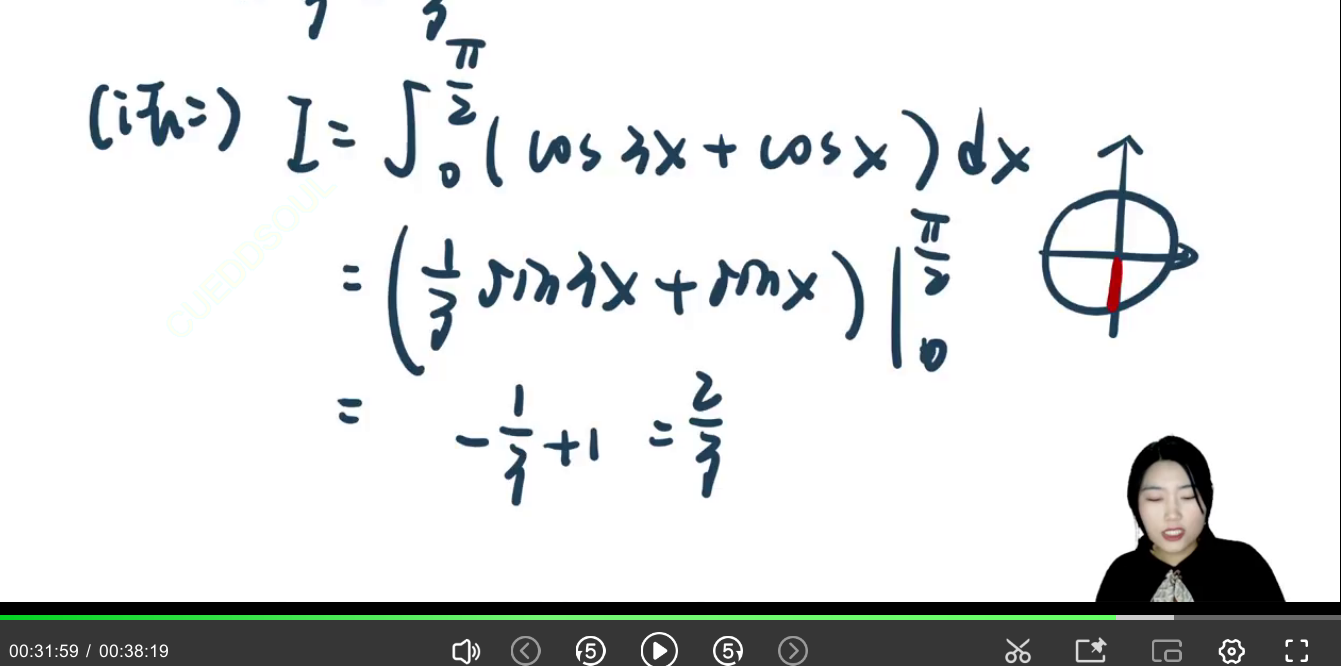 (计九=) I = ∫₀^{π/2} (cos 3x + cos x) dx
= (1/3 sin 3x + sin x) |₀^{π/2}
= -1/3 + 1 = 2/3
CUEDDSOUL
00:31:59 / 00:38:19
5 5